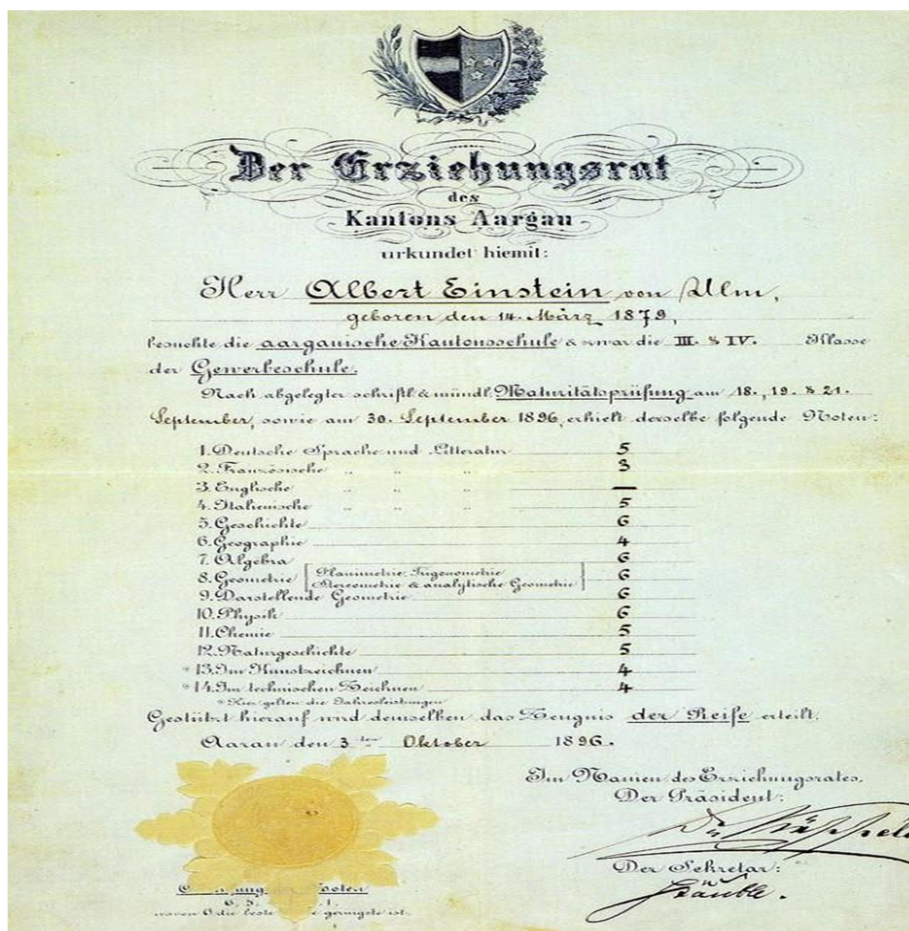 Der Erziehungsrat
des
Kantons Aargau
urkundet hiemit:
Herr Albert Einstein von Ulm,
geboren den 14. März 1879,
besuchte die aargauische Kantonsschule & zwar die III. & IV. Klasse
der Gewerbeschule.
Nach abgelegter schriftl. & mündl. Maturitätsprüfung am 18., 19. & 21.
September, sowie am 30. September 1896, erhielt derselbe folgende Noten:
1. Deutsche Sprache und Litteratur 5
2. Französische " " " 3
3. Englische " " " —
4. Italienische " " " 5
5. Geschichte 6
6. Geographie 4
7. Algebra 6
8. Geometrie [Planimetrie, Trigonometrie
Stereometrie & analytische Geometrie] 6
9. Darstellende Geometrie 6
10. Physik 6
11. Chemie 5
12. Naturgeschichte 5
* 13. Im Kunstzeichnen 4
* 14. Im technischen Zeichnen 4
* Hier gelten die Jahresleistungen
Gestützt hierauf wird demselben das Zeugnis der Reife erteilt.
Aarau den 3ten Oktober 1896.
Im Namen des Erziehungsrates,
Der Präsident:
Der Sekretär:
Noten
6. 5. 1.
wovon 6 die beste geringste ist.